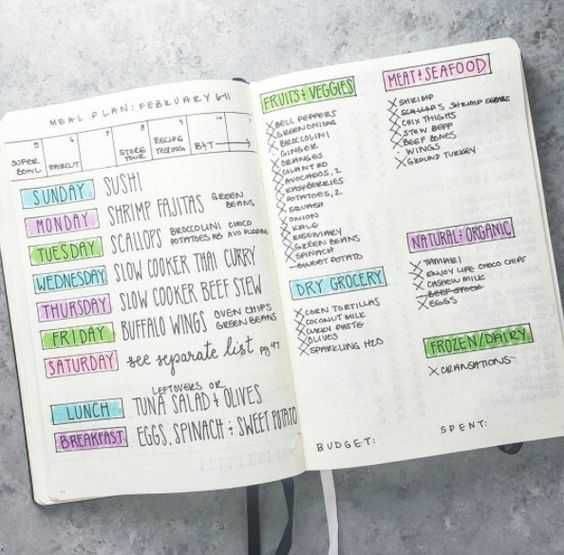 MEAL PLAN: FEBRUARY 6-11
5 6 7 8 9 10 11
SUPER BOWL
HAIRCUT
STORE TOUR
RECIPE TESTING
SUNDAY SUSHI
MONDAY SHRIMP FAJITAS GREEN BEANS
TUESDAY SCALLOPS BROCCOLINI CHOCO
POTATOES AVO PUDDING
WEDNESDAY SLOW COOKER THAI CURRY
THURSDAY SLOW COOKER BEEF STEW
FRIDAY BUFFALO WINGS OVEN CHIPS
GREEN BEANS
SATURDAY see separate list pg 47
LEFTOVERS OR
LUNCH TUNA SALAD & OLIVES
BREAKFAST EGGS, SPINACH & SWEET POTATO
FRUITS & VEGGIES
BELL PEPPERS
GREEN ONION
BROCCOLINI
GINGER
ORANGES
CILANTRO
AVOCADOS, 2
RASPBERRIES
POTATOES, 2
SQUASH
ONION
KALE
ROSEMARY
GREEN BEANS
SPINACH
SWEET POTATO
DRY GROCERY
CORN TORTILLAS
COCONUT MILK
CURRY PASTE
OLIVES
SPARKLING H2O
MEAT & SEAFOOD
SHRIMP
SCALLOPS
CHIX THIGHS
STEW BEEF
BEEF BONES
WINGS
GROUND TURKEY
NATURAL & ORGANIC
TAMARI
ENJOY LIFE CHOCO CHIPS
CASHEW MILK
BEEF STOCK
EGGS
FROZEN/DAIRY
BUDGET:
SPENT: